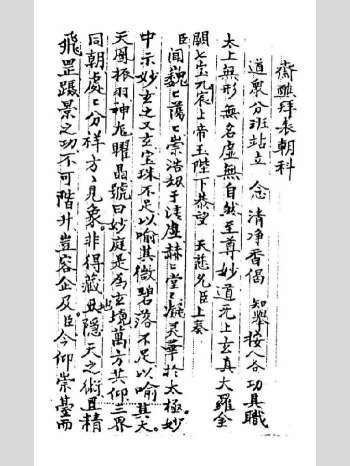 齋醮拜表朝科
道眾分班站立 念 清净香偈 知舉接八各功具職
太上無形無名虛無自然至尊妙道无上玄真大羅金
闕七宝九宸上帝玉陛下恭望 天慈允臣上奏
臣聞巍〻蕩〻崇浩劫于清虛赫〻堂〻凝灵華於太極妙
中示妙玄之又玄宝珠不足以喻其微碧落不足以喻其大
天凰振羽神龙曜晶號曰妙庭是為玄境萬方共仰三界
同朝處〻分祥方〻見象。非得藏地隱天之術且精
飛罡躡景之功不可階升豈容企及臣今仰崇臺而